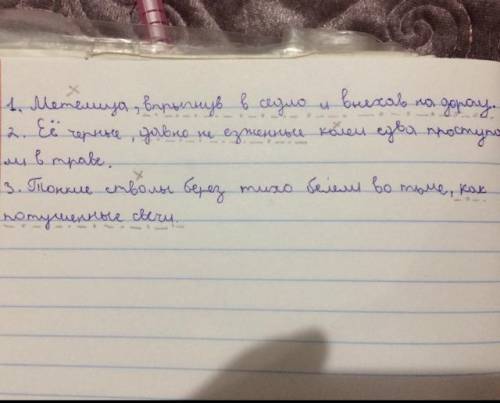 1. Метелица, впрыгнув в седло и внехав на дорогу.
2. Её черные, давно не езженные колеи едва проступа
ли в траве.
3. Тонкие стволы берез тихо белели во тьме, как
потушенные свечи.